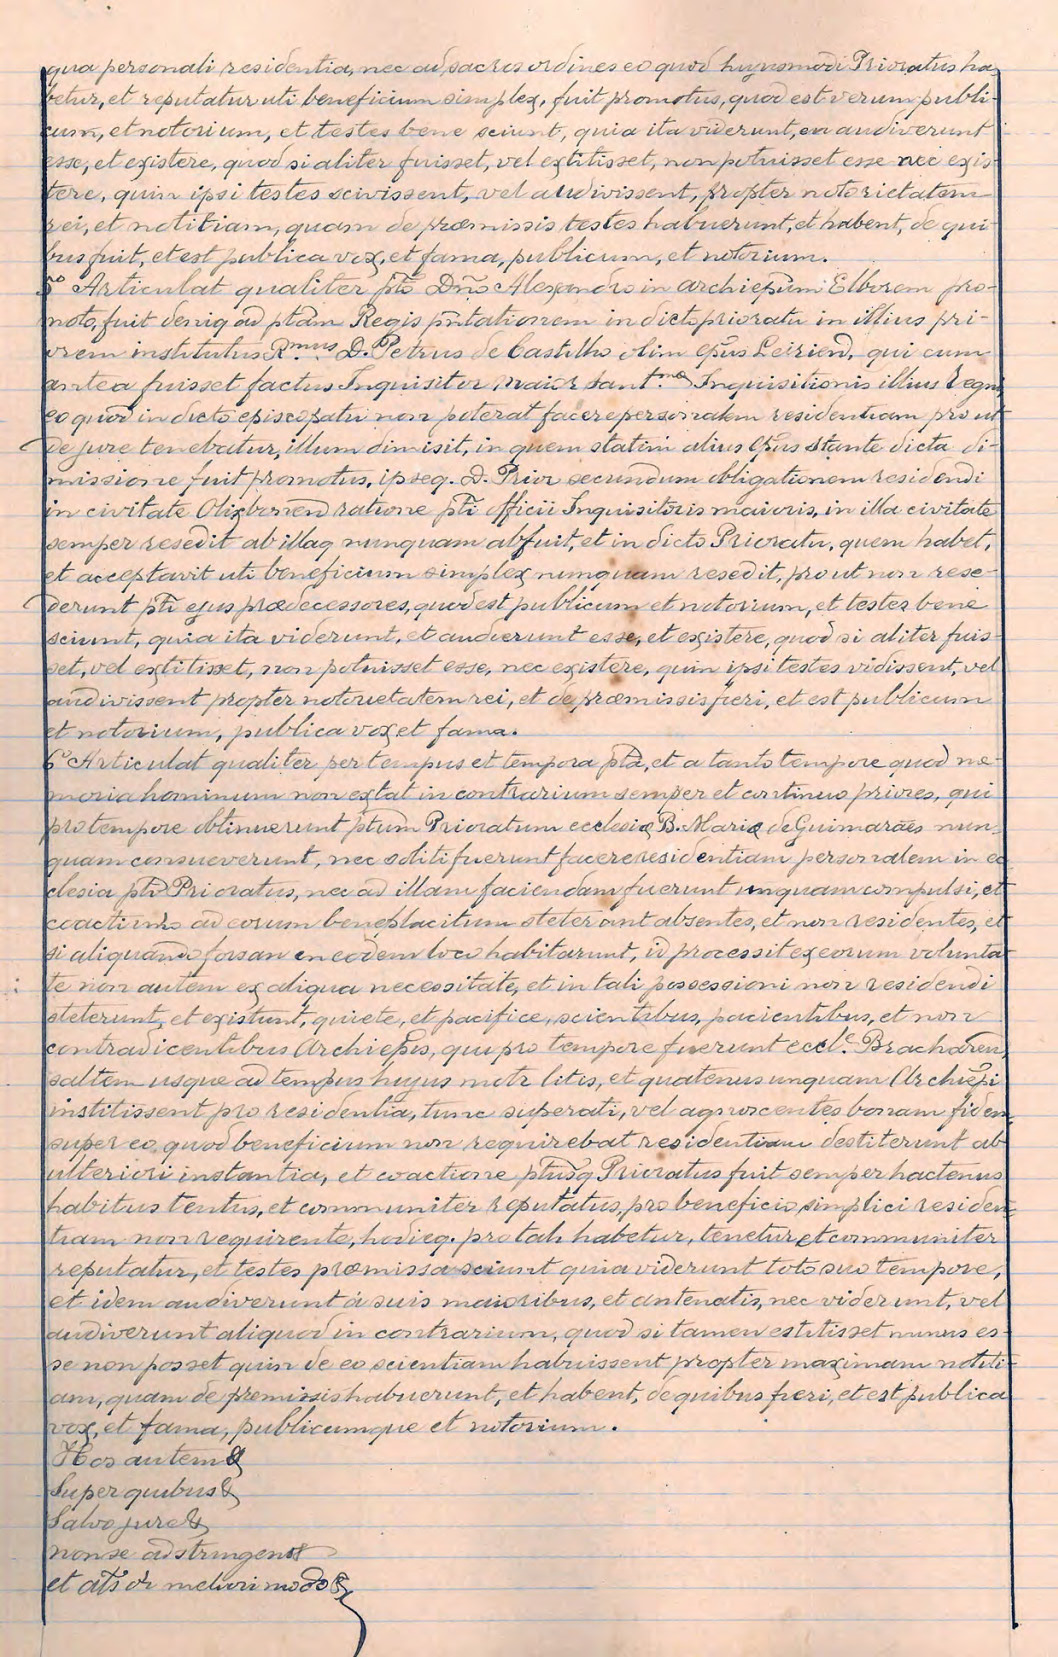 qua personali residentia, nec ad sacros ordines eo quod hujusmodi Prioratus ha-
betur, et reputatur uti beneficium simplex, fuit promotus, quod est verum publi-
cum, et notorium, et testes bene sciunt, quia ita viderunt, ea audiverunt
esse, et existere, quod si aliter fuisset, vel extitisset, non potuisset esse nec exis-
tere, quin ipsi testes scivissent, vel audivissent, propter notorietatem
rei, et notitiam, quam de præmissis testes habuerunt, et habent, de qui-
bus fuit, et est publica vox, et fama, publicum, et notorium.
5º Articulat qualiter pto Dño Alexandro in archiepũm Elborem pro-
moto, fuit deniq ad ptam Regis pñtationem in dicto prioratu in illius pri-
orem institutus R.mus D. Petrus de Castilho olim epũs Leirien, qui cum
antea fuisset factus Inquisitor maior sant.mæ Inquisitionis illius Regni
eo quod in dicto episcopatu non poterat facere personalem residentiam pro ut
de jure tenebatur, illum dimisit, in quem statim alius epũs stante dicta di-
missione fuit promotus, ipseq. D. Prior secundum obligationem residendi
in civitate Olixbonen ratione pti officii Inquisitoris maioris, in illa civitate
semper resedit ab illaq nunquam abfuit, et in dicto Prioratu, quem habet,
et acceptavit uti beneficium simplex nunquam resedit, pro ut non rese-
derunt pti ejus prædecessores, quod est publicum et notorium, et testes bene
sciunt, quia ita viderunt, et audierunt esse, et existere, quod si aliter fuis-
set, vel extitisset, non potuisset esse, nec existere, quin ipsi testes vidissent, vel
audivissent propter notorietatem rei, et de præmissis fieri, et est publicum
et notorium, publica vox et fama.
6º Articulat qualiter per tempus et tempora pta, et a tanto tempore quod me-
moria hominum non extat in contrarium semper et continuo priores, qui
pro tempore obtinuerunt ptum Prioratum ecclesiæ B. Mariæ de Guimarães nun-
quam consueverunt, nec soliti fuerunt facere residentiam personalem in ec
clesia pti Prioratus, nec ad illam faciendam fuerunt unquam compulsi, et
coacti imo ad eorum beneplacitum steterunt absentes, et non residentes, et
si aliquando forsan in eodem loco habitarunt, id processit ex eorum volunta
te non autem ex aliqua necessitate, et in tali possessioni non residendi
steterunt, et existunt, quiete, et pacifice, scientibus, pacientibus, et non
contradicentibus Archiepis, qui pro tempore fuerunt eccl.e Bracharen,
saltem usque ad tempus hujus motæ litis, et quatenus unquam Archiepi
institissent pro residentia, tunc superati, vel agnoscentes bonam fidem
super eo, quod beneficium non requirebat residentiam destiterunt ab
ulteriori instantia, et coactione ptusq Prioratus fuit semper hactenus
habitus tentus, et communiter reputatus, pro beneficio simplici residen
tiam non requirente, hodieq. pro tali habetur, tenetur, et communiter
reputatur, et testes præmissa sciunt quia viderunt toto suo tempore,
et idem audiverunt à suis maioribus, et antenatis, nec viderunt, vel
audiverunt aliquod in contrarium, quod si tamen estitisset nunus es-
se non posset quin de eo scientiam habuissent propter maximam notiti-
am, quam de premissis habuerunt, et habent, de quibus fieri, et est publica
vox, et fama, publicumque et notorium.
Hos autem &
Super quibus &
Salvo jure &
non se adstringens
et als ōi meliori modo &